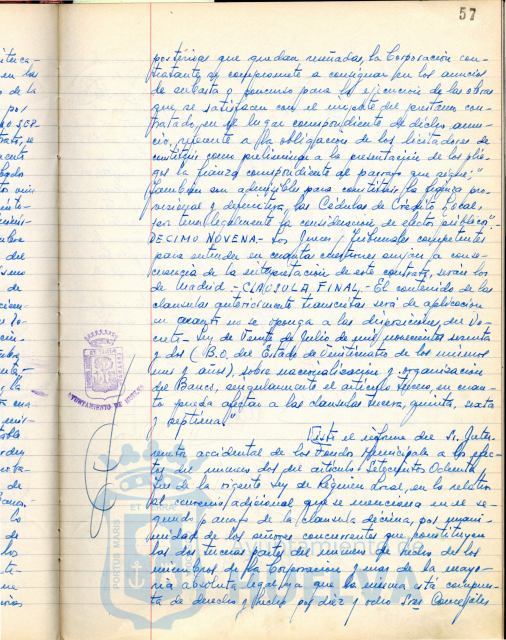 57
postérieas que quedan reseñadas, la Corporación con-
tratante se compromete a consignar en los anuncios
de subasta o concurso para la ejecución de las obras
que se satisfacen con el importe del préstamo con-
tratado, en el lugar correspondiente de dichos anun-
cios, referente a la obligación de los licitadores de
constituir como preliminar a la presentación de los plie-
gos la fianza correspondiente el párrafo que sigue: "
También son admisibles para constituir la fianza pro-
visional y definitiva, las Cédulas de Crédito Local,
por tener legalmente la consideración de efectos públicos".
DECIMO NOVENA.- Los Jueces y Tribunales competentes
para entender en cuantas cuestiones surjan a conse-
cuencia de la interpretación de este contrato, serán los
de Madrid.- CLAUSULA FINAL.- El contenido de las
cláusulas anteriormente transcritas será de aplicación
en cuanto no se oponga a las disposiciones del De-
creto-Ley de veinte de Julio de mil novecientos sesenta
y dos (B.O. del Estado de veinticuatro de los mismos
mes y año), sobre nacionalización y organización
del Banco, singularmente el artículo tercero, en cuan-
to pueda afectar a las cláusulas tercera, quinta, sexta
y séptima."
Visto el informe del Sr. Inter-
ventor accidental de los Fondos Municipales a los efec-
tos del número dos del artículo Setecientos Ochenta
de la vigente Ley de Régimen Local, en lo relativo
al convenio adicional que se menciona en el se-
gundo párrafo de la cláusula décima, por unani-
midad de los señores concurrentes que constituyen
las dos terceras partes del número de hecho de los
miembros de la Corporación y más de la mayo-
ría absoluta legal, ya que la misma está compues-
ta de derecho y hecho por diez y ocho Sres. Concejales
AYUNTAMIENTO DE HUELVA
PORTUS MARIS
ET TERRAE
Ayuntamiento de
HUELVA